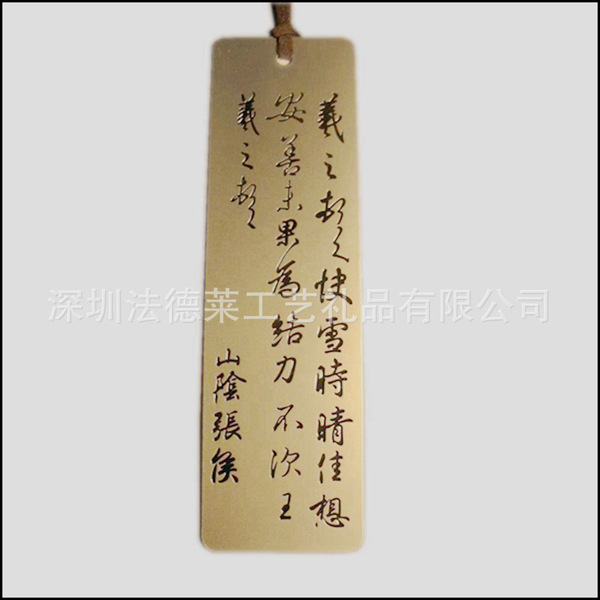 羲之頓首快雪時晴佳想
安善未果為結力不次王
羲之頓首
山陰張侯
深圳法德莱工艺礼品有限公司